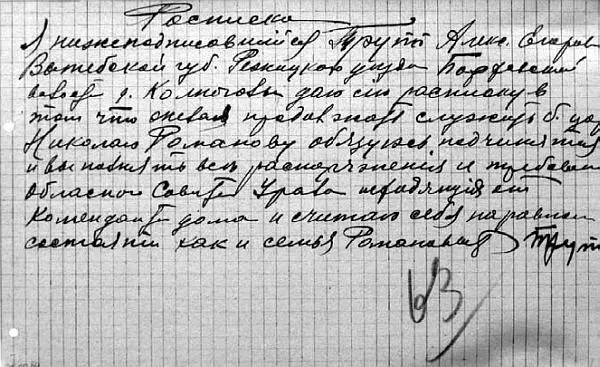 Росписка
Я нижеподписавшийся Трупп Алекс. Егоров
Витебской губ. Режицкого уезда Борховской
волости д. Колногова даю сию расписку в
том что желая продолжать служить б. царю
Николаю Романову обязуюсь подчинятся
и выполнять все распоряжения и требован
Областного Совета Урала исходящия от
Коменданта дома и считать себя на равном
состоянии как и семья Романовых Трупп